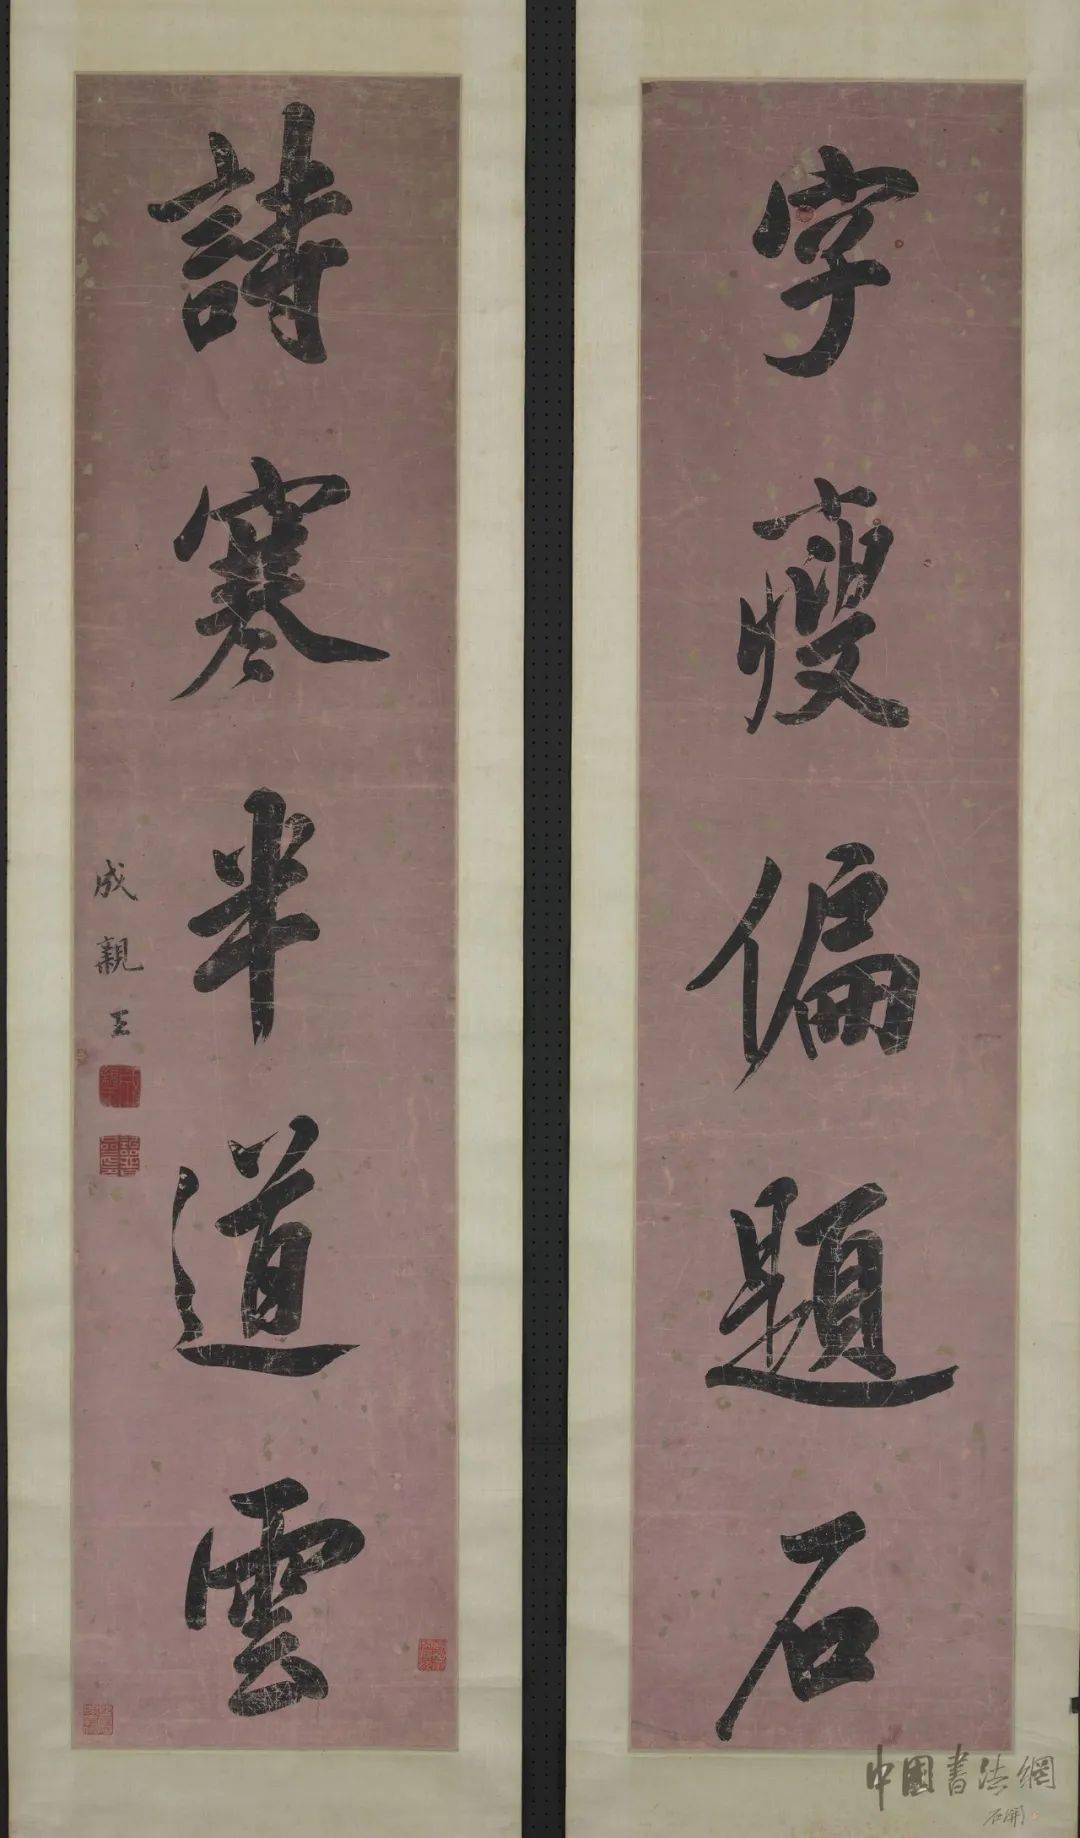 字瘦偏題石
詩寒半道雲
成親王
中國書法網